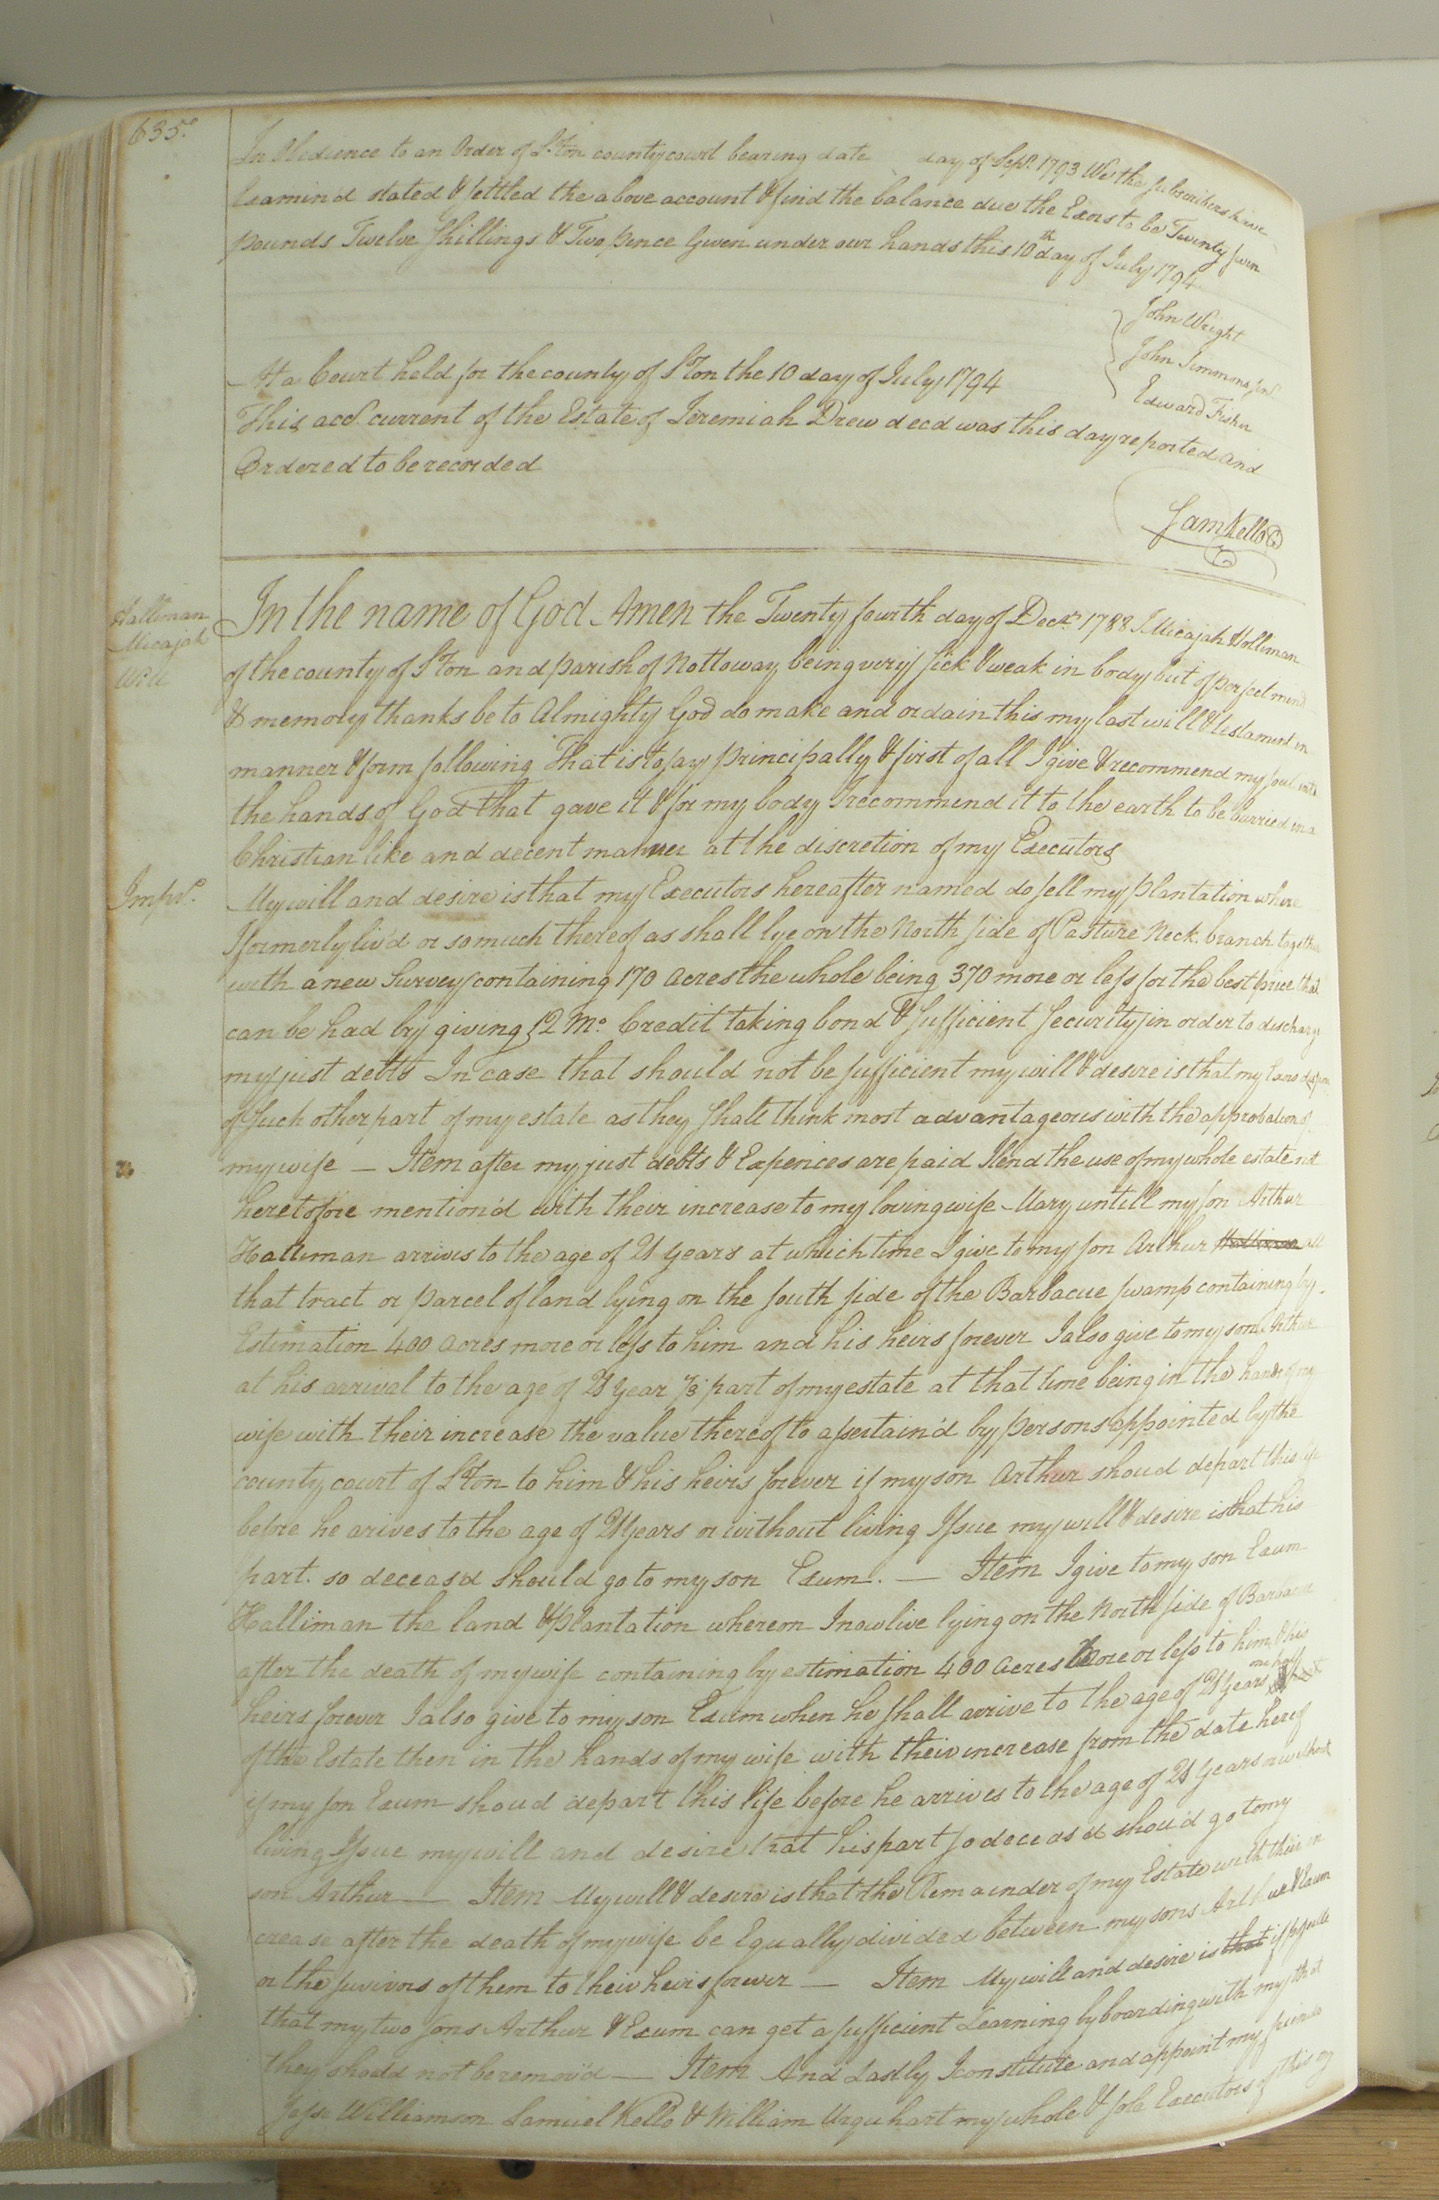 635.
In Obedience to an Order of S.Ton county court bearing date day of Sept. 1793 We the subscribers have
Examin'd stated & settled the above account & find the balance due the Exors to be Twenty
pounds Twelve shillings & Two pence Given under our hands this 10th day of July 1794
John Wright
John Simmons
Edward Fisher
At a Court held for the county of S.Ton the 10 day of July 1794
This acct. current of the Estate of Jeremiah Drew decd was this day reported and
Ordered to be recorded
Sam Kello
Halliman
Micajah
Will
In the name of God Amen the Twenty fourth day of Decr. 1788 I Micajah Holliman
of the county of S.Ton and parish of Nottoway being very sick & weak in body but of perfect mind
& memory thanks be to Almighty God do make and ordain this my last will & testament in
manner & form following That is to say principally & first of all I give & recommend my soul into
the hands of God that gave it & for my body I recommend it to the earth to be burried in a
Christian like and decent manner at the discretion of my Executors
Imprs.
My will and desire is that my Executors hereafter named do sell my plantation where
I formerly liv'd or so much thereof as shall lye on the North side of Pasture Neck branch together
with a new Survey containing 170 acres the whole being 370 more or less for the best price that
can be had by giving 12 Mo. Credit taking bond & sufficient security in order to discharge
my just debts In case that should not be sufficient my will & desire is that my
of such other part of my estate as they shall think most advantageous with the approbation of
my wife — Item after my just debts & Expences are paid I lend the use of my whole estate not
heretofore mention'd with their increase to my loving wife Mary untill my son Arthur
Halliman arrives to the age of 21 years at which time I give to my son Arthur all
that tract or parcel of land lying on the south side of the Barbacue swamp containing by
Estimation 400 acres more or less to him and his heirs forever I also give to my son Arthur
at his arrival to the age of 21 year 1/3 part of my estate at that time being in the hands of my
wife with their increase the value thereof to assertain'd by persons appointed by the
county court of S.Ton to him & his heirs forever if my son Arthur shoud depart this life
before he arives to the age of 21 years or without living Issue my will & desire is that his
part so deceas'd should go to my son Exum. — Item I give to my son Exum
Halliman the land & plantation whereon I now live lying on the North side of Barbacue
after the death of my wife containing by estimation 400 acres more or less to him & his
heirs forever I also give to my son Exum when he shall arrive to the age of 21 years one half
of the Estate then in the hands of my wife with their increase from the date hereof
if my son Exum shoud depart this life before he arrives to the age of 21 years or without
living Issue my will and desire that his part so deceas'd shou'd go to my
son Arthur — Item My will & desire is that the Remainder of my Estate with their in
crease after the death of my wife be Equally divided between my sons Arthur & Exum
or the survivors of them to their heirs forever — Item My will and desire is that if possible
that my two sons Arthur & Exum can get a sufficient Learning by boarding with my that
they should not be remov'd — Item And Lastly I constitute and appoint my friends
Jesse Williamson Samuel Kello & William Urquhart my whole & sole Executors of this my